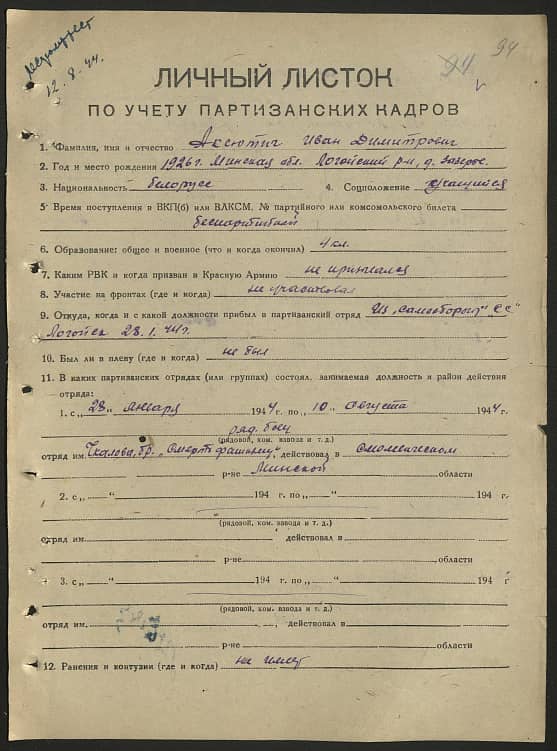 94 94
12.8.44.
ЛИЧНЫЙ ЛИСТОК
ПО УЧЕТУ ПАРТИЗАНСКИХ КАДРОВ
1. Фамилия, имя и отчество Аксютич Иван Димитрович
2. Год и место рождения 1926 г. Минская обл. Логойский р-н, д.
3. Национальность белорусс 4. Соцположение учащийся
5 Время поступления в ВКП(б) или ВЛКСМ, № партийного или комсомольского билета
беспартийный
6. Образование: общее и военное (что и когда окончил) 4 кл.
7. Каким РВК и когда призван в Красную Армию не призывался
8. Участие на фронтах (где и когда) не участвовал
9. Откуда, когда и с какой должности прибыл в партизанский отряд Из „самообороны" СС"
Логойск 28.1.44 г.
10. Был ли в плену (где и когда) не был
11. В каких партизанских отрядах (или группах) состоял, занимаемая должность и район действия
отряда:
1. с „28" января 1944 г. по „10" августа 1944 г.
ряд. боец
(рядовой, ком. взвода и т. д.)
отряд им. Чкалова, бр. „Смерть фашизму", действовал в Смолевичском
р-не Минской области
2. с „ " 194 г. по „ " 194 г.
(рядовой, ком. взвода и т. д.)
отряд им. действовал в
р-не области
3. с „ " 194 г. по „ " 194 г
(рядовой, ком. взвода и т. д.)
отряд им. , действовал в
р-не области
12. Ранения и контузии (где и когда) не имеет